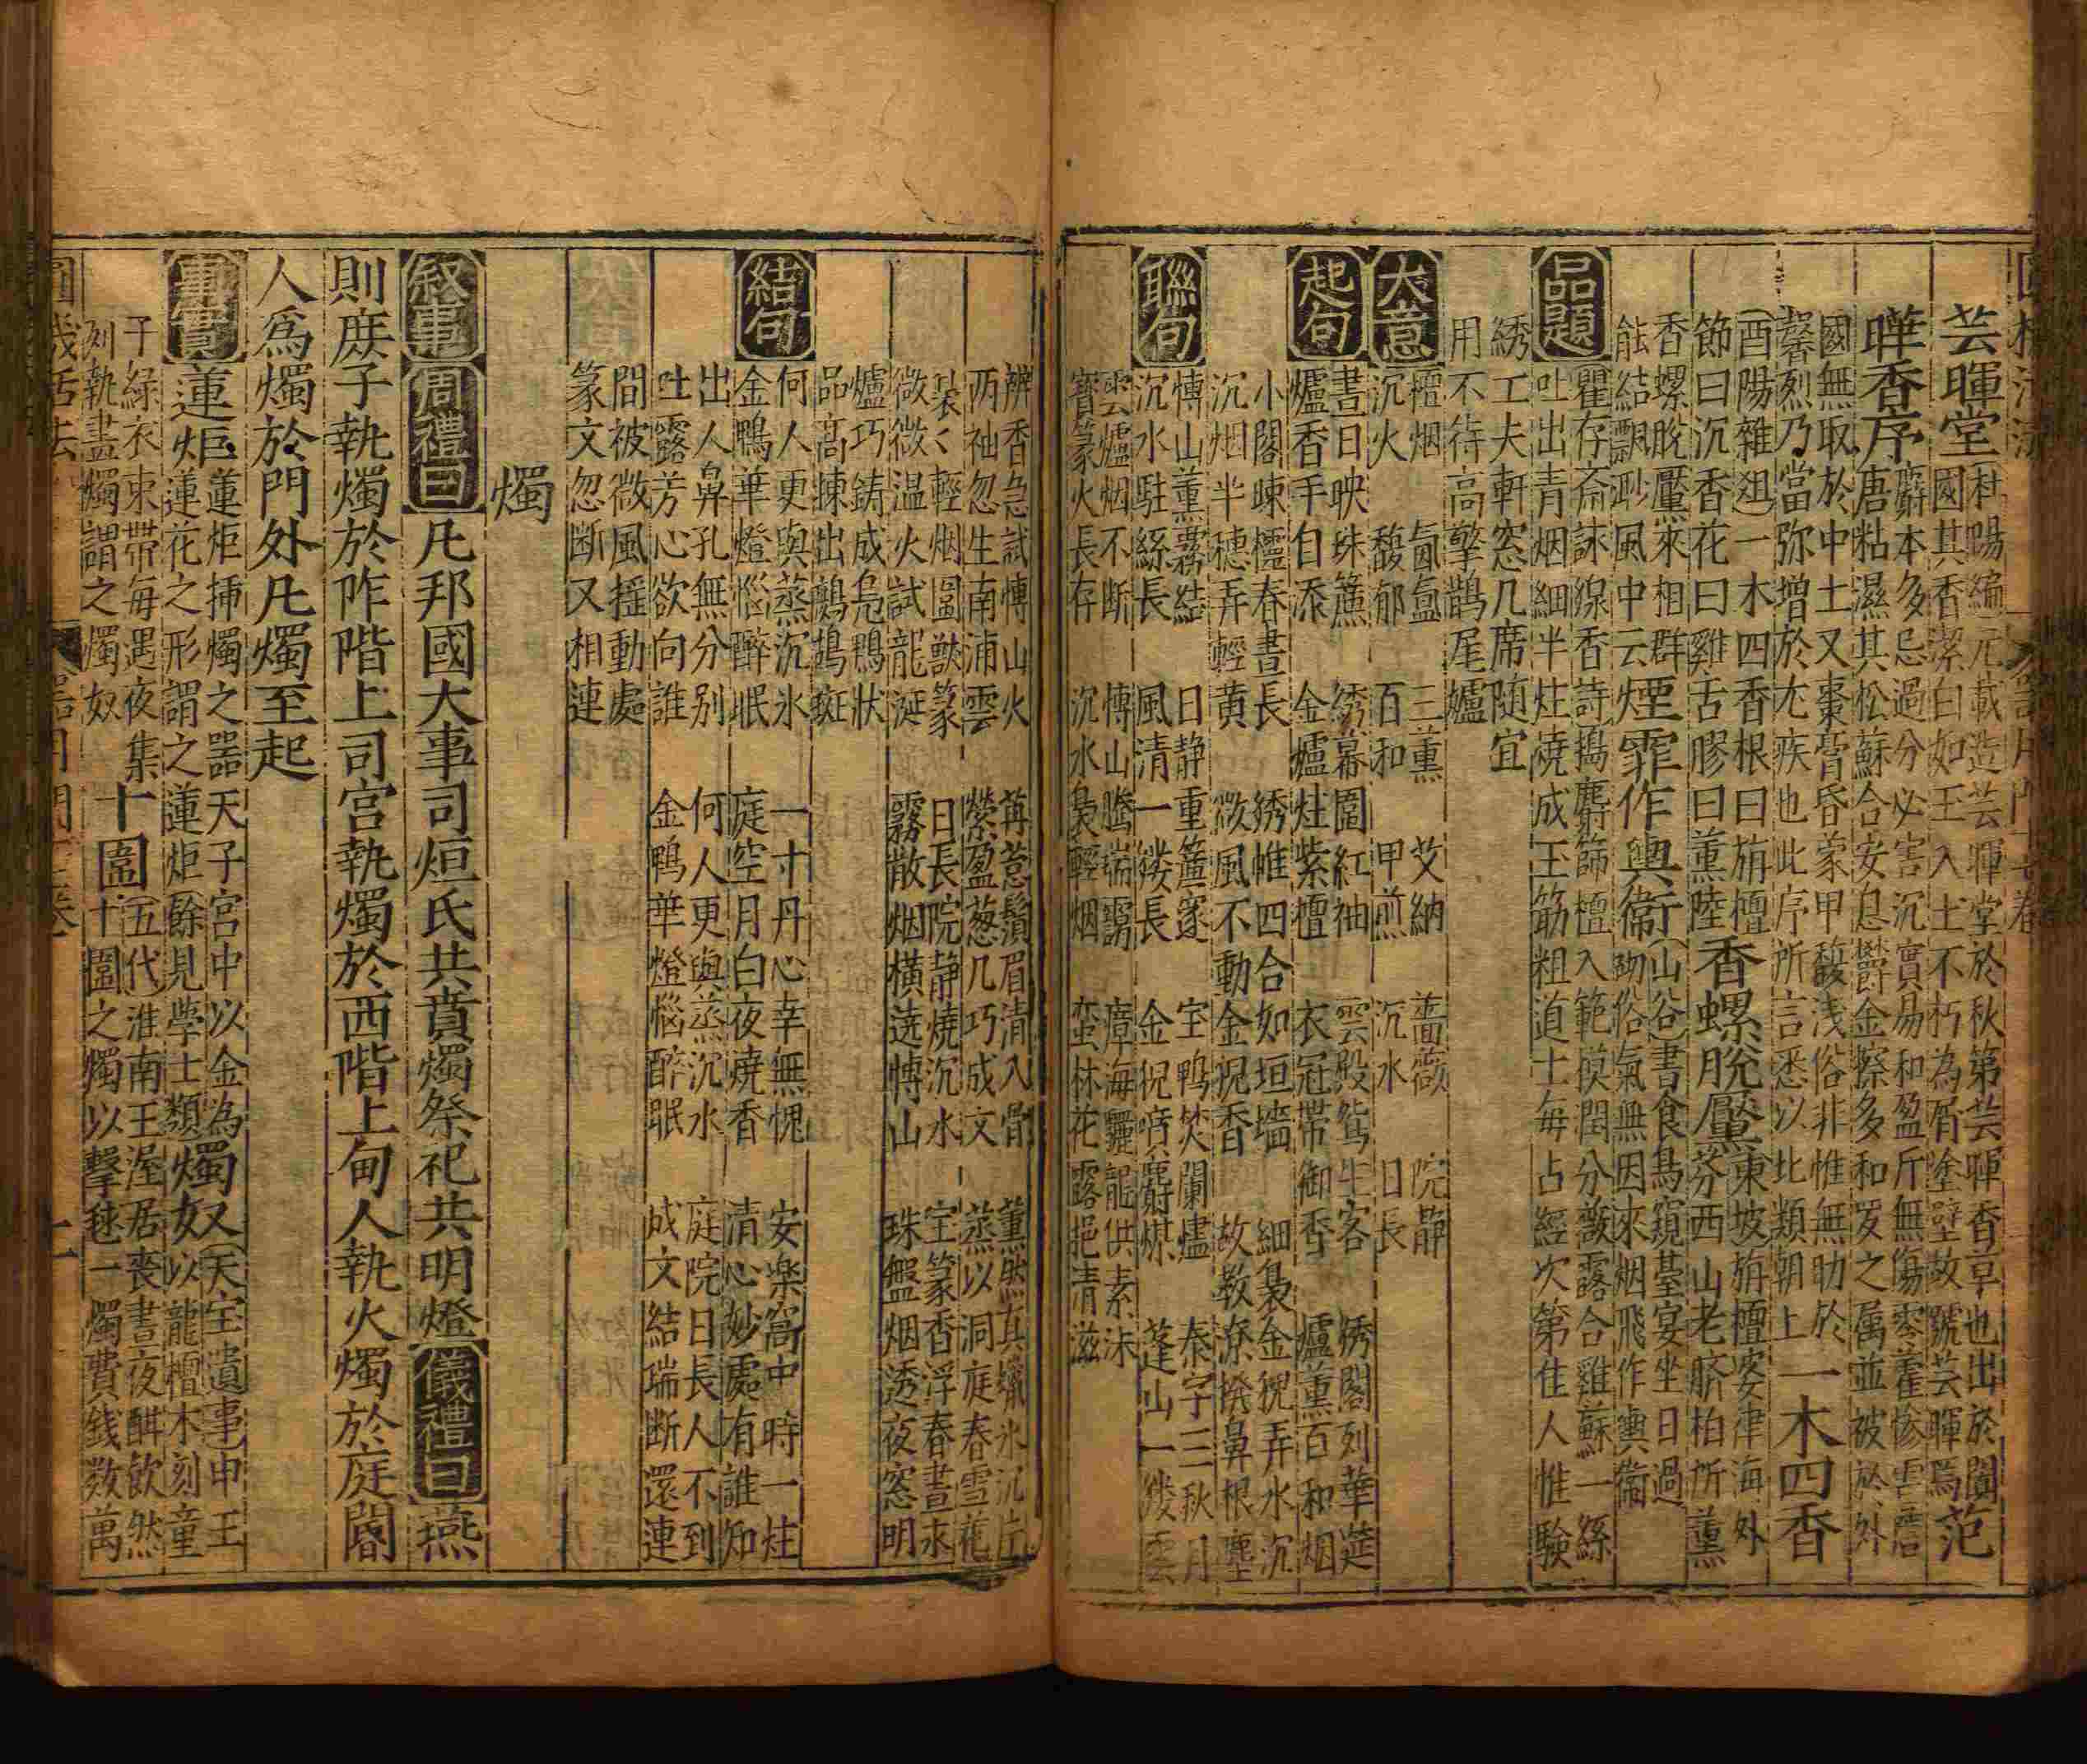 芸暉堂
杜陽編元載造芸暉堂於秋第芸暉香草也出於闐
國其香潔白如玉入土不朽為屑塗壁故號芸暉焉
范
曄香序
麝本多忌過分必害沉實易和盈斤無傷零藿慘雲唐
唐粘濕其松蘇合安息欝金㮏多和罗之属並被於外
國無取於中土又棗膏昏蒙甲馢浅俗非惟無助於
馨烈乃當弥增於尤疾也此序所言悉以比類朝上
一木四香
酉陽雜俎一木四香根曰旃檀
節曰沉香花曰雞舌膠曰薰陸
香螺脫黶
東坡旃檀婆津海外
芬西山老臍柏所薰
香螺脫黶來相群
能結飄渺風中云
煙霏作輿衛
山谷書食鳥窺臺宴坐日過
砌俗氣無因來烟飛作輿衛
品題
瞿存斎詠線香詩搗麝篩檀入範模潤分薇露合雞蘇一絲
吐出青烟細半炷燒成玉筯粗道士每占經次第隹人惟驗
綉工夫軒窓几席随宜
用不待高擎鵲尾爐
大意
檀烟 氤氳 三薰 艾納 薔薇 院静
沉火 馥郁 百和 甲煎 沉水 日長
起句
晝日映珠簾 綉幕圍紅袖 雲殿鴛生客 綉閣列華筵
爐香手自添 金爐炷紫檀 衣冠帯御香 爐薰百和烟
小閣暕檀春晝長 綉帷四合如垣墙 細裊金猊弄水沉
沉烟半穗弄輕黄 微風不動金猊香 故教潦撥鼻根塵
聯句
博山薰霧結 日静重簾邃 宝鴨焚蘭燼 泰字三秋月
沉水駐絲長 風清一縷長 金猊噴麝煤 蓬山一縷雲
雲爐烟不断 博山騰瑞靄 瘴海驪龍供素沫
寳篆火長存 沉水裊輕烟 蛮林花露挹清滋
辨香急試博山火 苒惹鬚眉清入骨 薰然真蠟氷沉片
两袖忽生南浦雲 縈盈葱几巧成文 蒸以洞庭春雪花
裊〻輕烟圍獸篆 日長院静燒沉水 宝篆香浮春晝永
微微温火試龍涎 霧散烟横遶博山 珠盤烟透夜窓明
爐巧鋳成凫鴨狀
品高揀出鷓鴣斑
結句
何人更與蒸沉氷 一寸丹心幸無愧 安楽窩中時一炷
金鴨華燈惱醉眠 庭空月白夜燒香 清心妙處有誰知
出人鼻孔無分别 何人更與蒸沉水 庭院日長人不到
吐露芳心欲向誰 金鴨華燈惱醉眠 成文結瑞断還連
間被微風摇動處
篆文忽断又相連
燭
叙事
周禮曰
凡邦國大事司烜氏共蕡燭祭祀共明燈
儀禮曰
燕
則庻子執燭於阼階上司宫執燭於西階上甸人執火燭於庭閽
人爲燭於門外凡燭至起
事實
蓮炬
蓮炬揷燭之噐天子宫中以金為
蓮花之形謂之蓮炬餘見學士類
燭奴
天宝遺事申王
以龍檀木刻童
子緑衣束帶每遇夜集
列執畫燭謂之燭奴
十圍
五代淮南王渥居喪晝夜酣飲然
十圍之燭以擊毬一燭費銭数萬